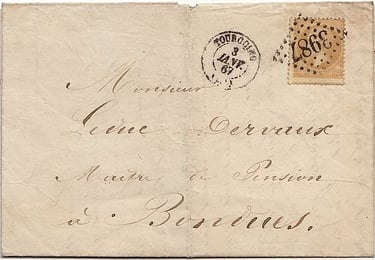 TOURCOING
3
JANV.
67
3987
Monsieur
Dervaux
Maître de Pension
à Bondues.